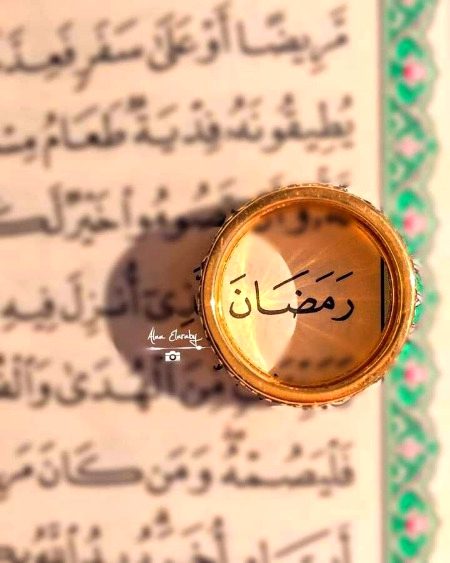 مَّرِيضًا أَوْ عَلَىٰ سَفَرٍ فَعِدَّ
يُطِيقُونَهُۥ فِدْيَةٌ طَعَامُ مِسْ
خَيْرٌ لَّكُ
رَمَضَانَ ٱلَّذِىٓ أُنزِلَ فِيهِ
Alaa Elaraby
مِّنَ ٱلْهُدَىٰ وَٱلْفُ
فَلْيَصُمْهُ وَمَن كَانَ مَرِ